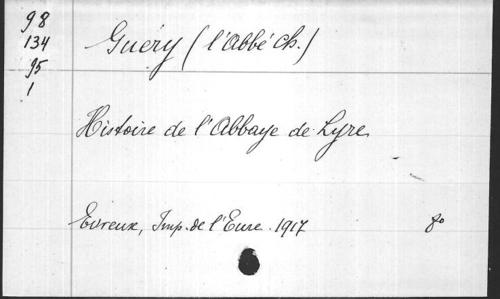 98
134
95
1
Guéry (l'Abbé Ch.)
Histoire de l'Abbaye de Lyre
Evreux, Imp. de l'Eure. 1917 8°